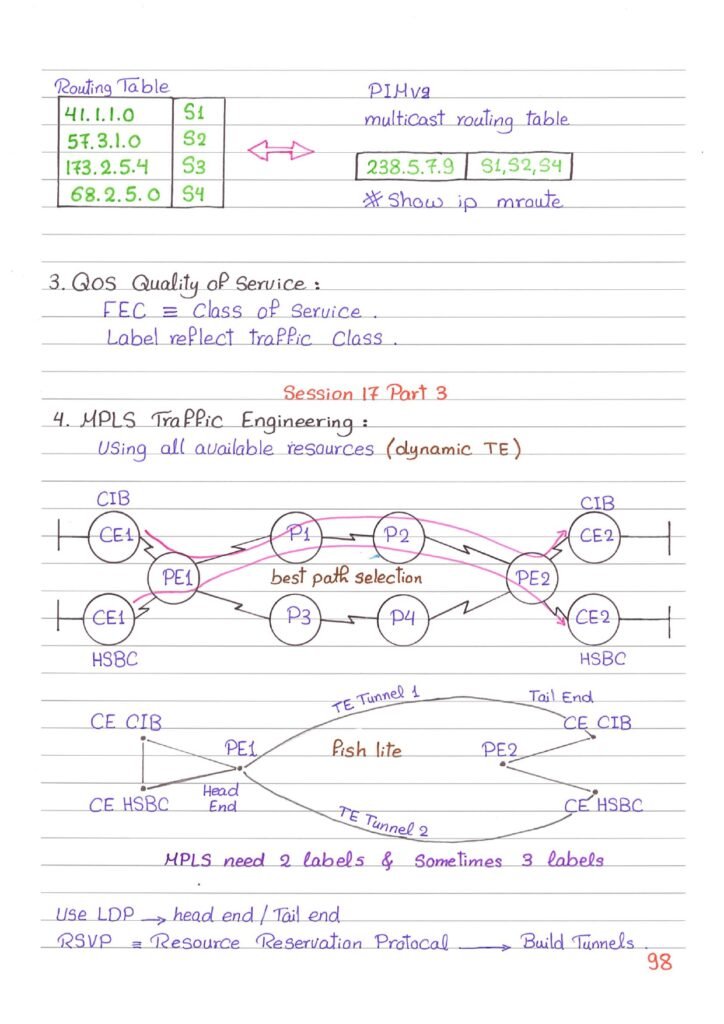 Routing Table
41.1.1.0 S1
57.3.1.0 S2
173.2.5.4 S3
68.2.5.0 S4
PIMv2
multicast routing table
238.5.7.9 S1,S2,S4
# Show ip mroute
3. QOS Quality of Service :
FEC ≡ Class of Service .
Label reflect traffic Class .
Session 17 Part 3
4. MPLS Traffic Engineering :
Using all available resources (dynamic TE)
CIB CIB
CE1 P1 P2 CE2
PE1 best path selection PE2
CE1 P3 P4 CE2
HSBC HSBC
TE Tunnel 1 Tail End
CE CIB CE CIB
PE1 fish lite PE2
CE HSBC Head End CE HSBC
TE Tunnel 2
MPLS need 2 labels & Sometimes 3 labels
Use LDP → head end / Tail end
RSVP ≡ Resource Reservation Protocal → Build Tunnels .
98